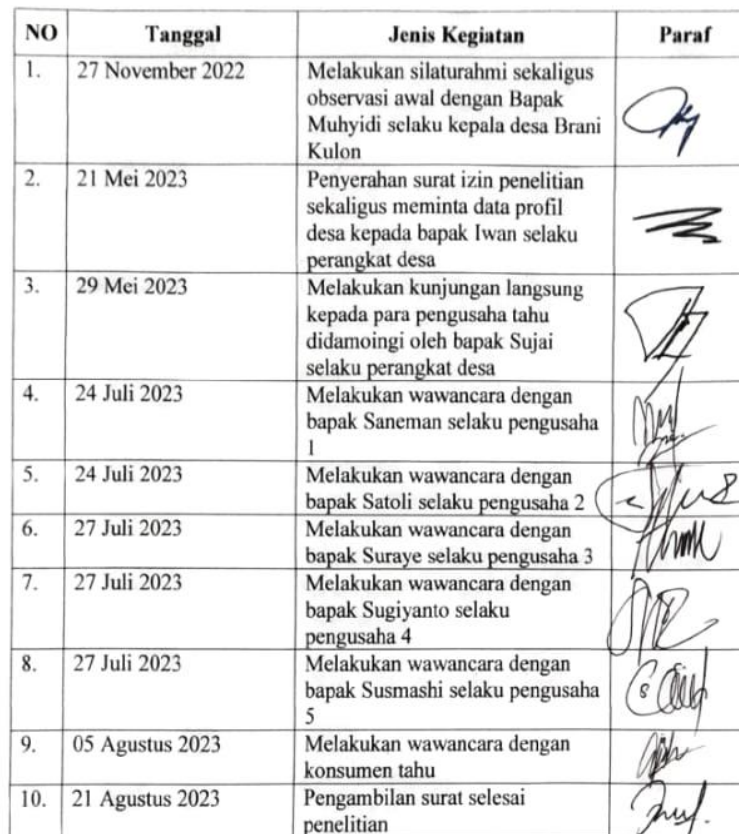 NO Tanggal Jenis Kegiatan Paraf
1. 27 November 2022 Melakukan silaturahmi sekaligus
observasi awal dengan Bapak
Muhyidi selaku kepala desa Brani
Kulon
2. 21 Mei 2023 Penyerahan surat izin penelitian
sekaligus meminta data profil
desa kepada bapak Iwan selaku
perangkat desa
3. 29 Mei 2023 Melakukan kunjungan langsung
kepada para pengusaha tahu
didamoingi oleh bapak Sujai
selaku perangkat desa
4. 24 Juli 2023 Melakukan wawancara dengan
bapak Saneman selaku pengusaha
1
5. 24 Juli 2023 Melakukan wawancara dengan
bapak Satoli selaku pengusaha 2
6. 27 Juli 2023 Melakukan wawancara dengan
bapak Suraye selaku pengusaha 3
7. 27 Juli 2023 Melakukan wawancara dengan
bapak Sugiyanto selaku
pengusaha 4
8. 27 Juli 2023 Melakukan wawancara dengan
bapak Susmashi selaku pengusaha
5
9. 05 Agustus 2023 Melakukan wawancara dengan
konsumen tahu
10. 21 Agustus 2023 Pengambilan surat selesai
penelitian